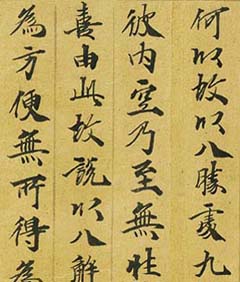 何以故以八勝處九
彼内空乃至無性
喜由此故説以八解
為方便無所得為